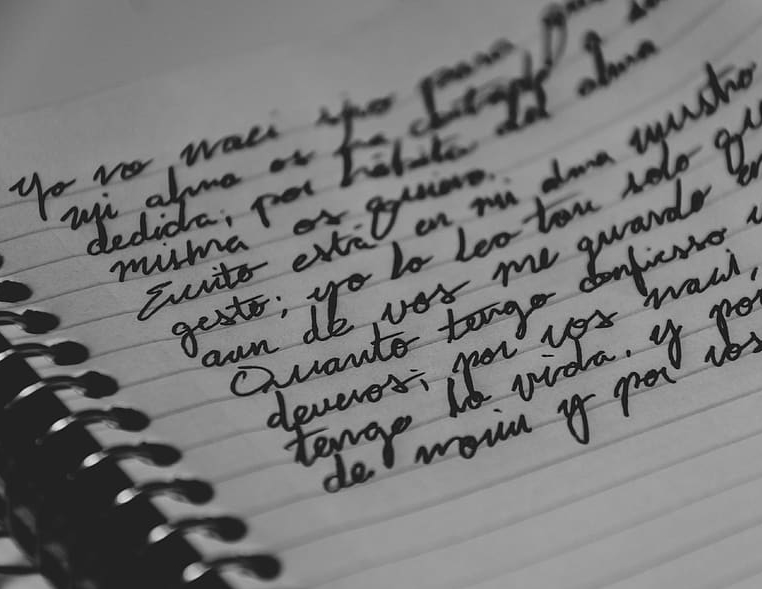 Yo no naci sino para
mi alma os ha cortado a
dedida; por hábito del alma
mishma os quiero.
Escrito está en mi alma vuestro
gesto; yo lo leo tan solo
aun de vos me guardo en
Quanto tengo confiesso
deveros; por vos naci,
tengo la vida, y por
de morir y por vos